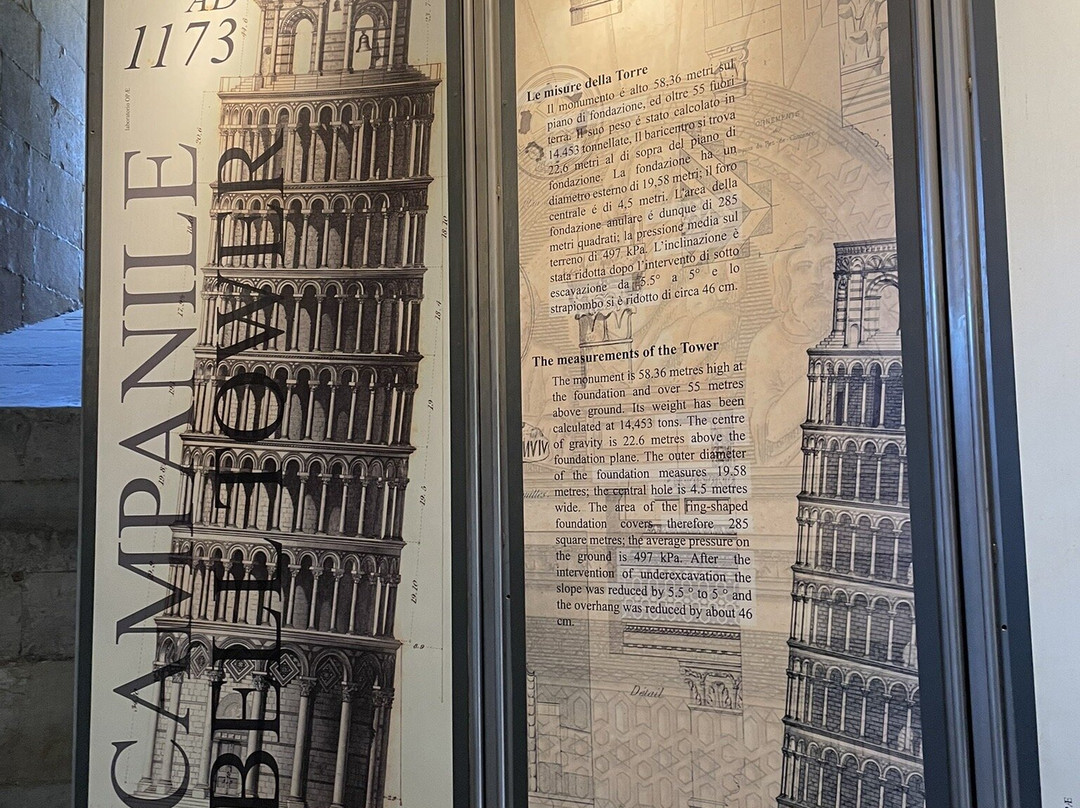 AD
1173
CAMPANILE
BELL TOWER
Le misure della Torre
Il monumento é alto 58,36 metri sul
piano di fondazione, ed oltre 55 fuori
terra. Il suo peso é stato calcolato in
14.453 tonnellate, Il baricentro si trova
22,6 metri al di sopra del piano di
fondazione. La fondazione ha un
diametro esterno di 19,58 metri; il foro
centrale é di 4,5 metri. L'area della
fondazione anulare é dunque di 285
metri quadrati; la pressione media sul
terreno di 497 kPa. L'inclinazione è
stata ridotta dopo l'intervento di sotto
escavazione da 5.5° a 5° e lo
strapiombo si è ridotto di circa 46 cm.
The measurements of the Tower
The monument is 58.36 metres high at
the foundation and over 55 metres
above ground. Its weight has been
calculated at 14,453 tons. The centre
of gravity is 22.6 metres above the
foundation plane. The outer diameter
of the foundation measures 19.58
metres; the central hole is 4.5 metres
wide. The area of the ring-shaped
foundation covers therefore 285
square metres; the average pressure on
the ground is 497 kPa. After the
intervention of underexcavation the
slope was reduced by 5.5 ° to 5 ° and
the overhang was reduced by about 46
cm.
Détail